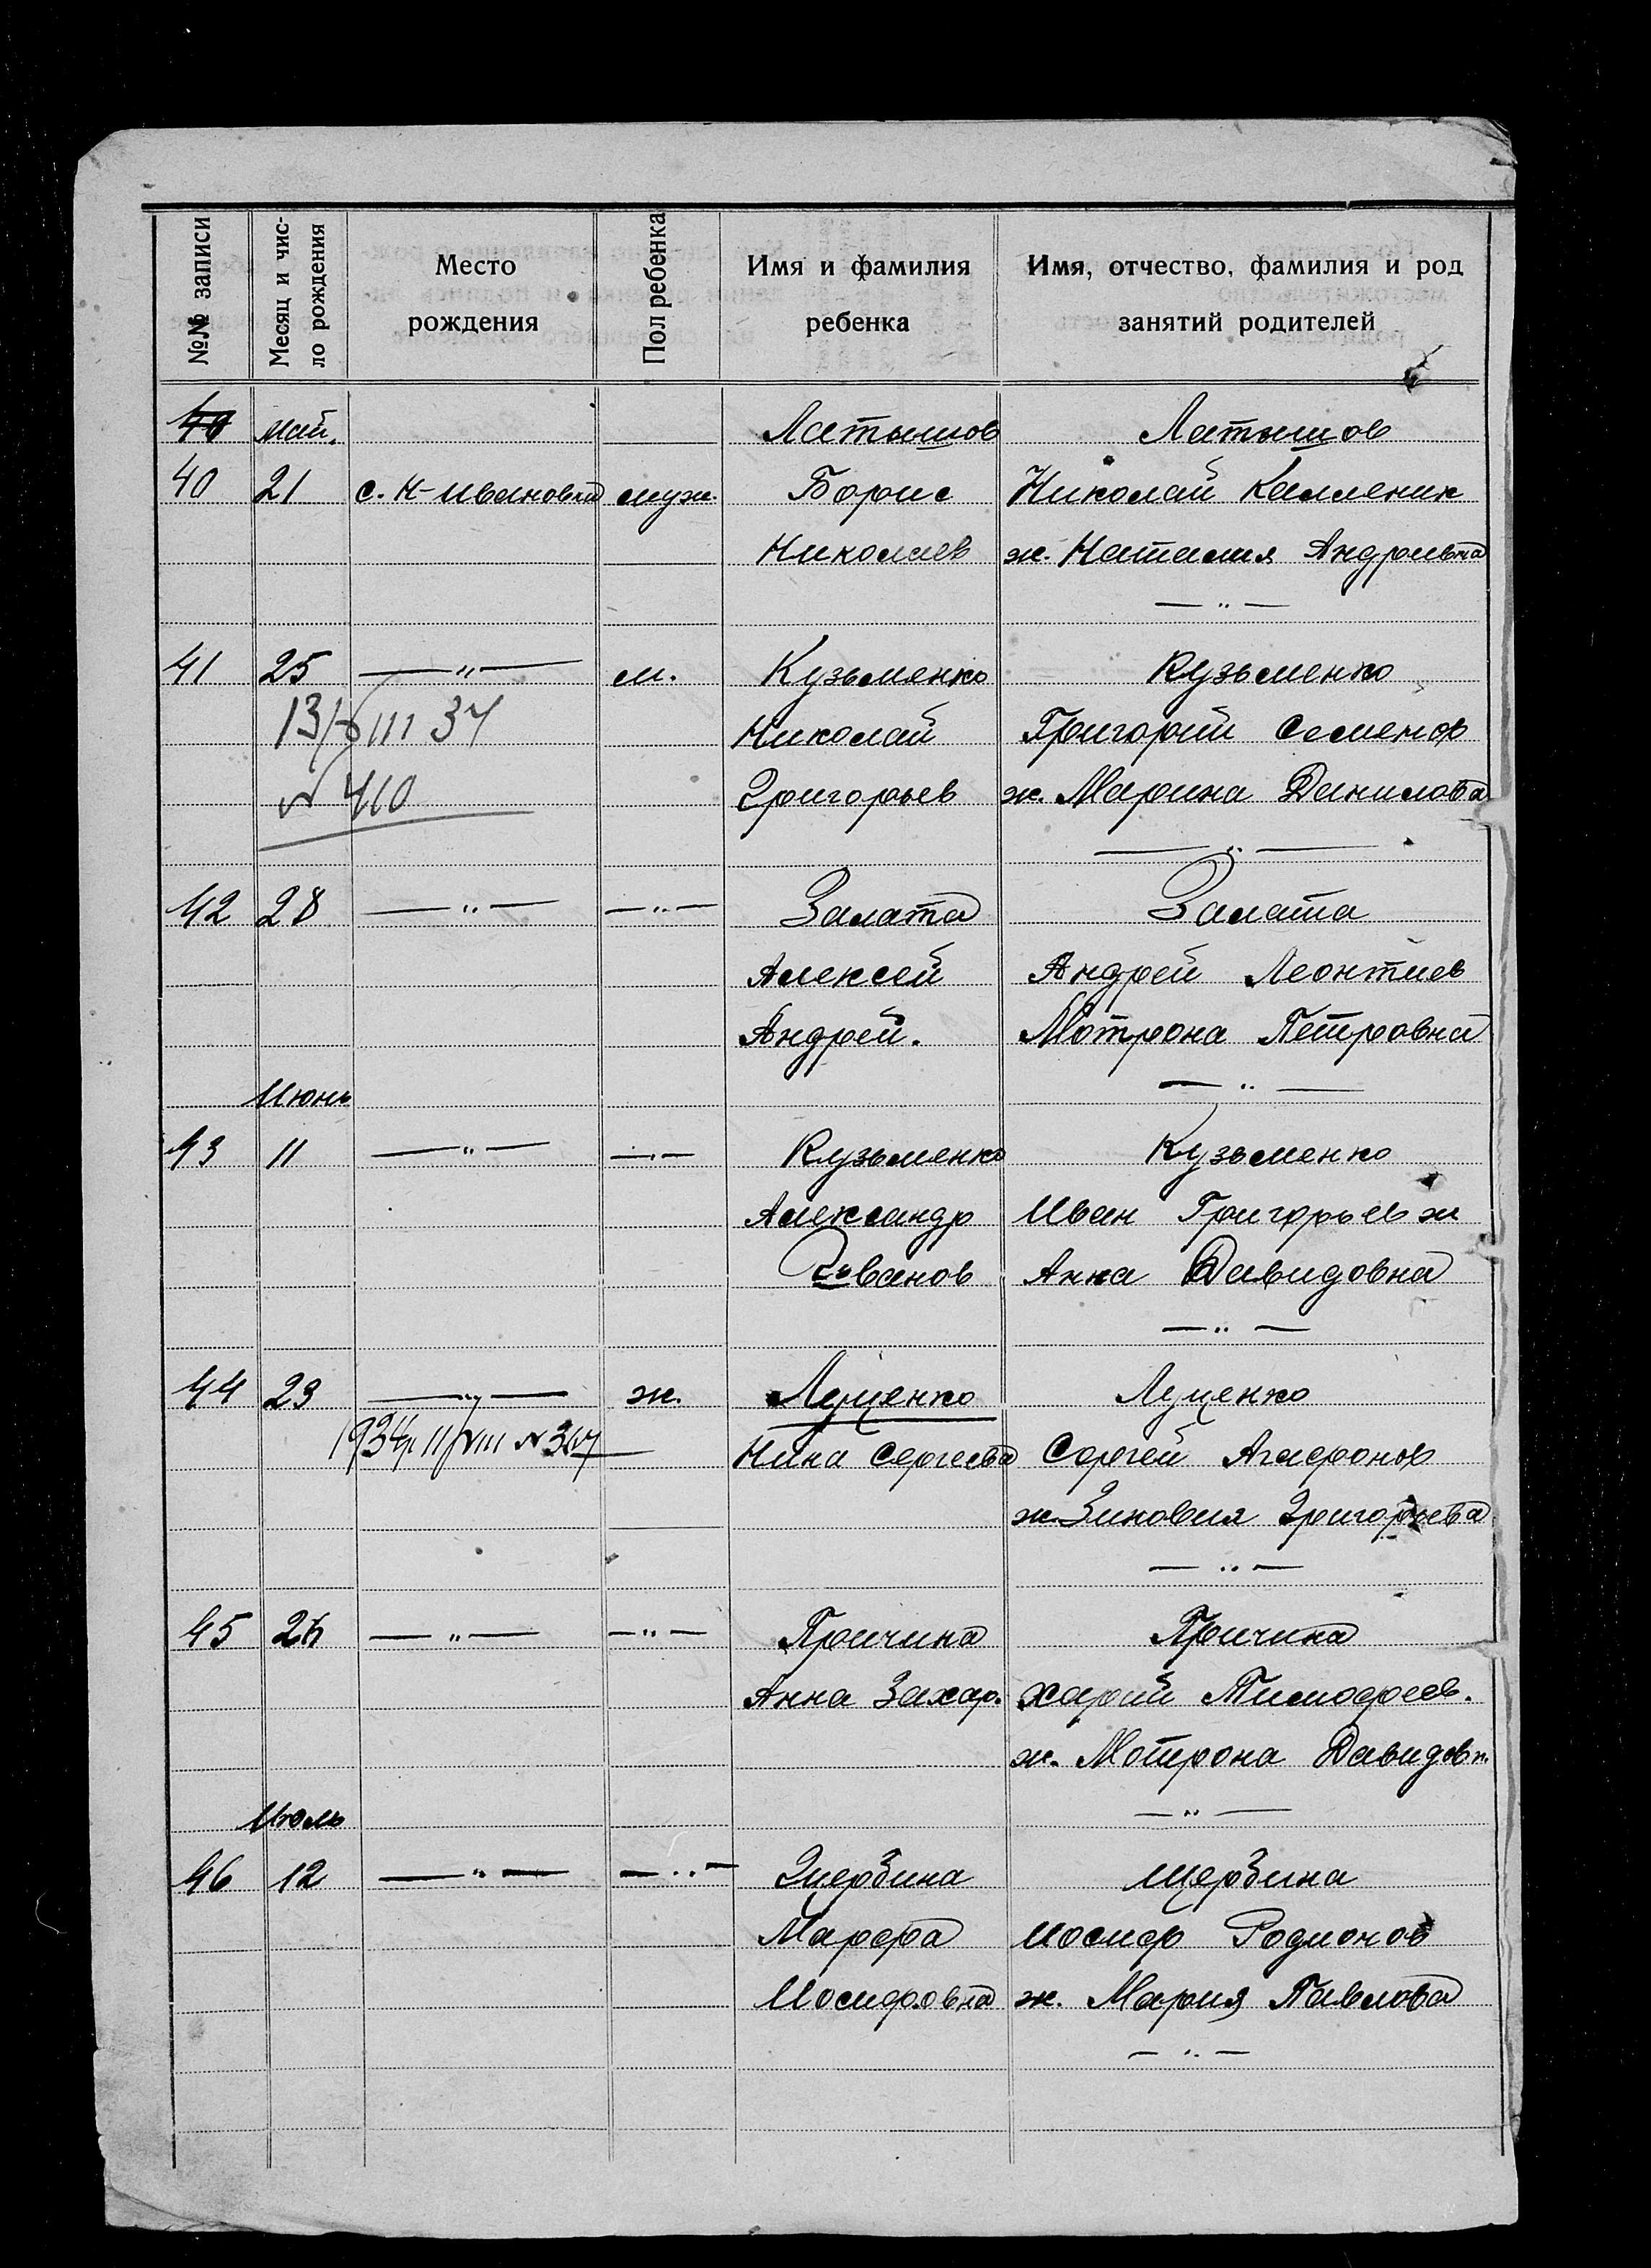 №№ записи
Месяц и число рождения
Место рождения
Пол ребенка
Имя и фамилия ребенка
Имя, отчество, фамилия и род занятий родителей
40 май. Латышов Латышов
40 21 с. К-Ивановка муж. Борис Николай Калленик
Николаев ж. Наталия Андреевна
— „ —
41 25 — „ — м. Кузьменко Кузьменко
13/VIII 37 Николай Григорий Семенов
N 410 Григорьев ж. Марина Данилова
— „ —
42 28 — „ — — „ — Залата Залата
Алексей Андрей Леонтиев
Андрей. Мотрона Петровна
Июнь — „ —
43 11 — „ — — „ — Кузьменко Кузьменко
Александр Иван Григорьев ж
Иванов Анна Давидовна
— „ —
44 23 — „ — ж. Луценко Луценко
1934г 11/VIII N Нина Сергеева Сергей Агафонов
ж. Зиновия Григорьева
— „ —
45 — „ — — „ — Причина Причина
Анна Захар. Харий Тимофеев.
ж. Мотрона Давидовн.
Июль — „ —
46 12 — „ — — „ — Щербина Щербина
Марфа Иосиф Родионов
Иосифовна ж. Мария Павлова
— „ —